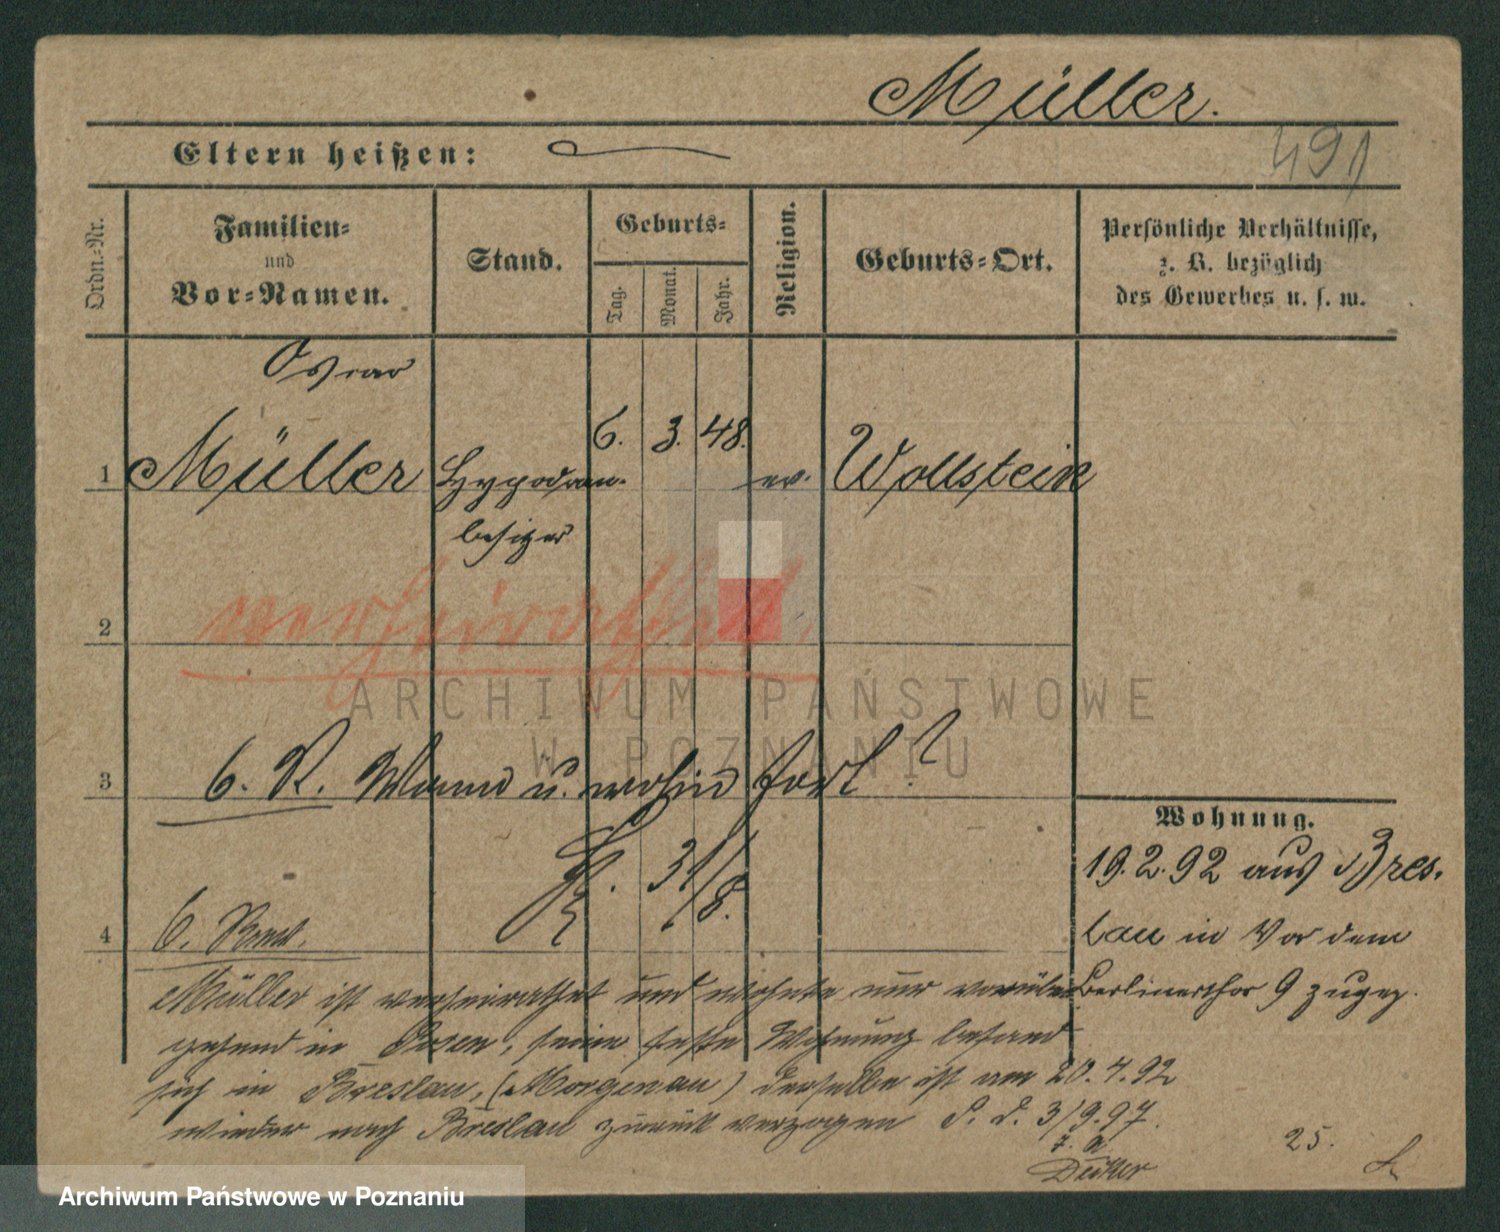 Müller.
Eltern heißen:
491
Ordn.-Nr.
Familien-
und
Vor-Namen.
Stand.
Geburts-
Tag.
Monat.
Jahr.
Religion.
Geburts-Ort.
Persönliche Verhältnisse,
z. B. bezüglich
des Gewerbes u. s. w.
Oscar
1 Müller 6. 3. 48. ev. Wollstein
besitzer
2 verheirathet
3 6. R. Wann u. wohin fort?
31/8.
Wohnung.
19.2.92 aus Bres-
lau in Vor dem
Berlinerthor 9 zugez.
4 6. Rev.
Müller ist verheirathet und wohnte nur vorüber-
gehend in Posen, seine feste Wohnung befand
sich in Breslau, (Morgenau) derselbe ist am 20.4.92
wieder nach Breslau zurück verzogen P. d. 3/9.97.
25.
ARCHIWUM PAŃSTWOWE
W POZNANIU
Archiwum Państwowe w Poznaniu